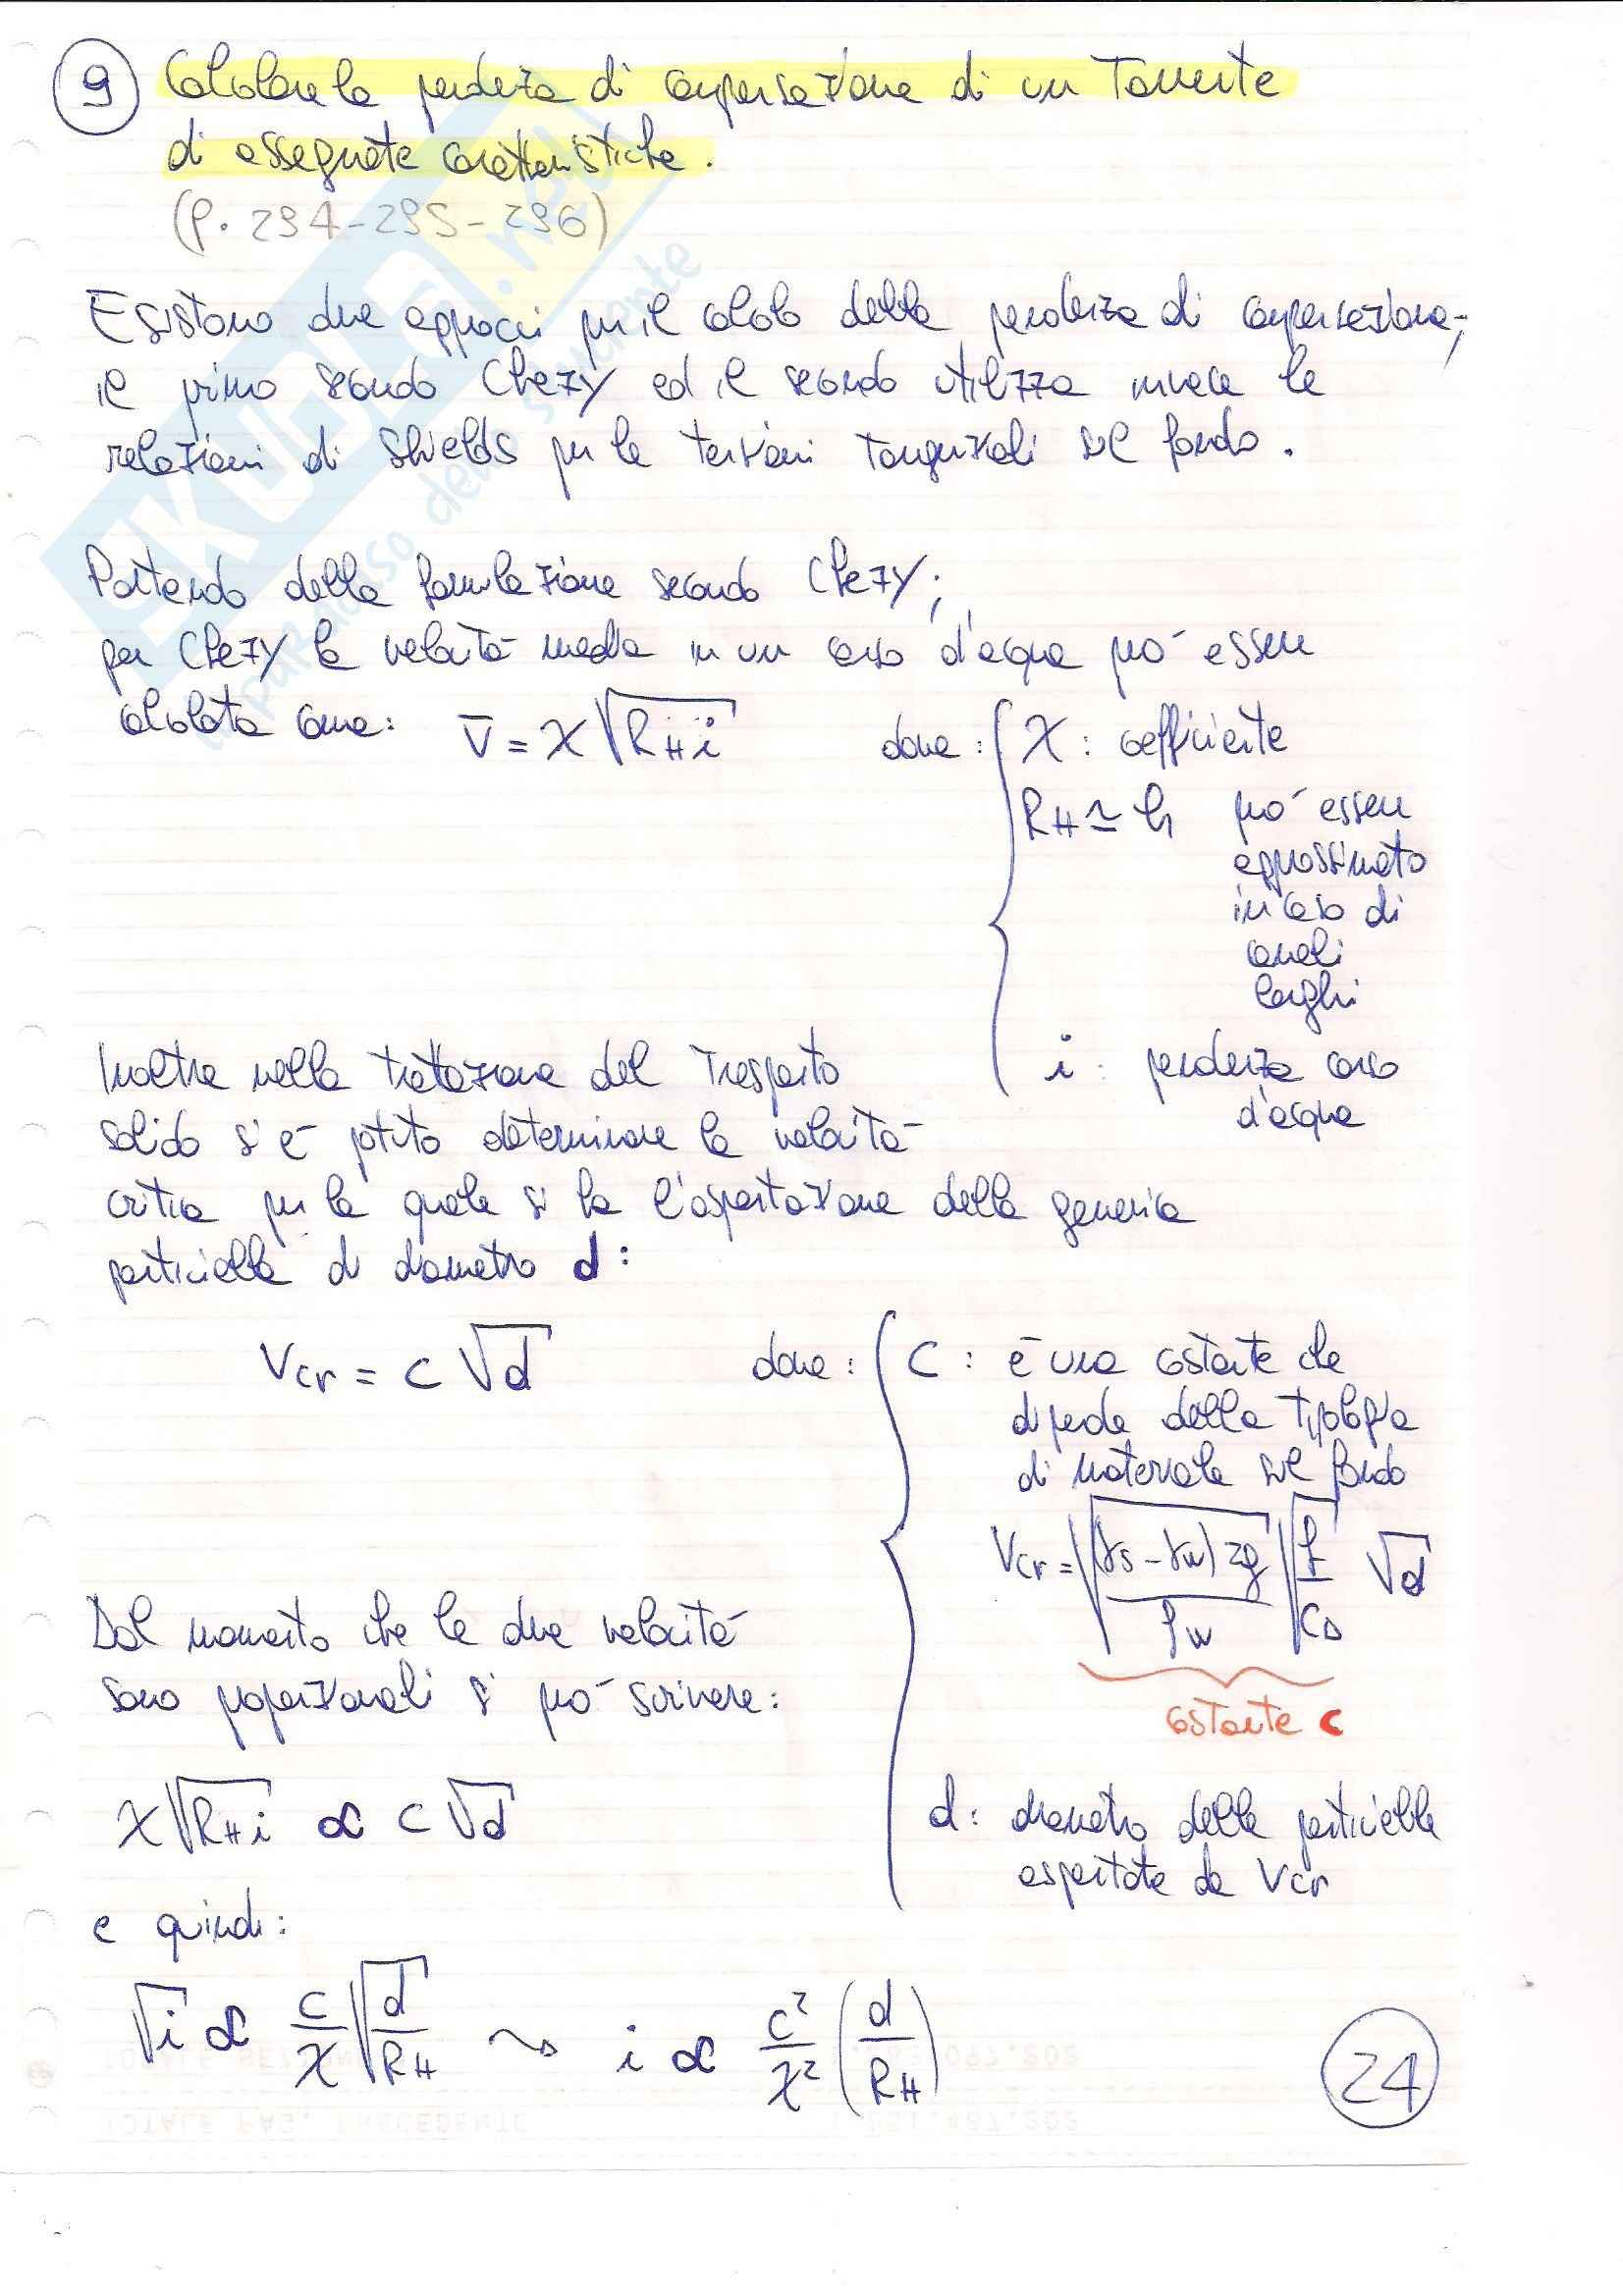 9 Calcolare la pendenza di compensazione di un torrente
di assegnate caratteristiche.
(P. 294-295-296)
Esistono due approcci per il calcolo della pendenza di compensazione;
il primo secondo Chezy ed il secondo utilizza invece le
relazioni di Shields per le tensioni tangenziali sul fondo.
Partendo dalla formulazione secondo Chezy;
per Chezy la velocità media in un corso d'acqua può essere
calcolata come: V̄ = χ √(R_H i) dove: χ : coefficiente
R_H ≃ h può essere
approssimato
in caso di
canali
larghi
i : pendenza corso
d'acqua
Inoltre nella trattazione del trasporto
solido si è potuto determinare la velocità
critica per la quale si ha l'asportazione della generica
particella di diametro d:
Vcr = c √d dove: C : è una costante che
dipende dalla tipologia
di materiale sul fondo
Vcr = √((γs - γw) 2g / γw) √(f / C_D) √d
costante c
Dal momento che le due velocità
sono proporzionali si può scrivere:
χ √(R_H i) ∝ c √d
d : diametro delle particelle
asportate da Vcr
e quindi:
√i ∝ c/χ √(d/R_H) ⇝ i ∝ c²/χ² (d/R_H)
24